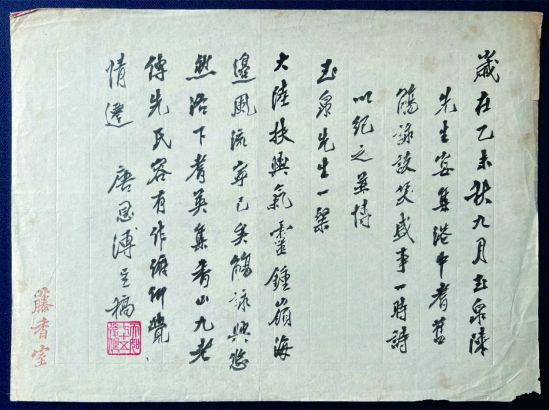 歲在乙未秋九月玉泉陳
先生宴集港中耆舊
觴詠談笑盛事一時詩
以紀之並博
玉泉先生一粲
大陸扶輿氣靈鍾嶺海
邊風流寧已矣觴詠興悠
然洛下耆英集香山九老
傳先民容有作俯仰覺
情遷 唐恩溥呈稿
藤香室